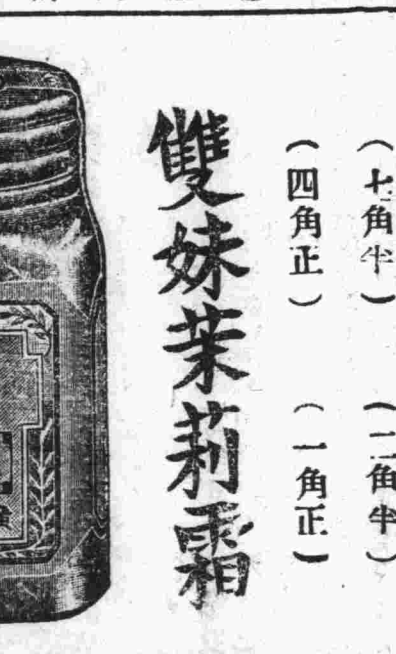 (七角半) (二角半)
(四角正) (一角正)
雙妹茉莉霜